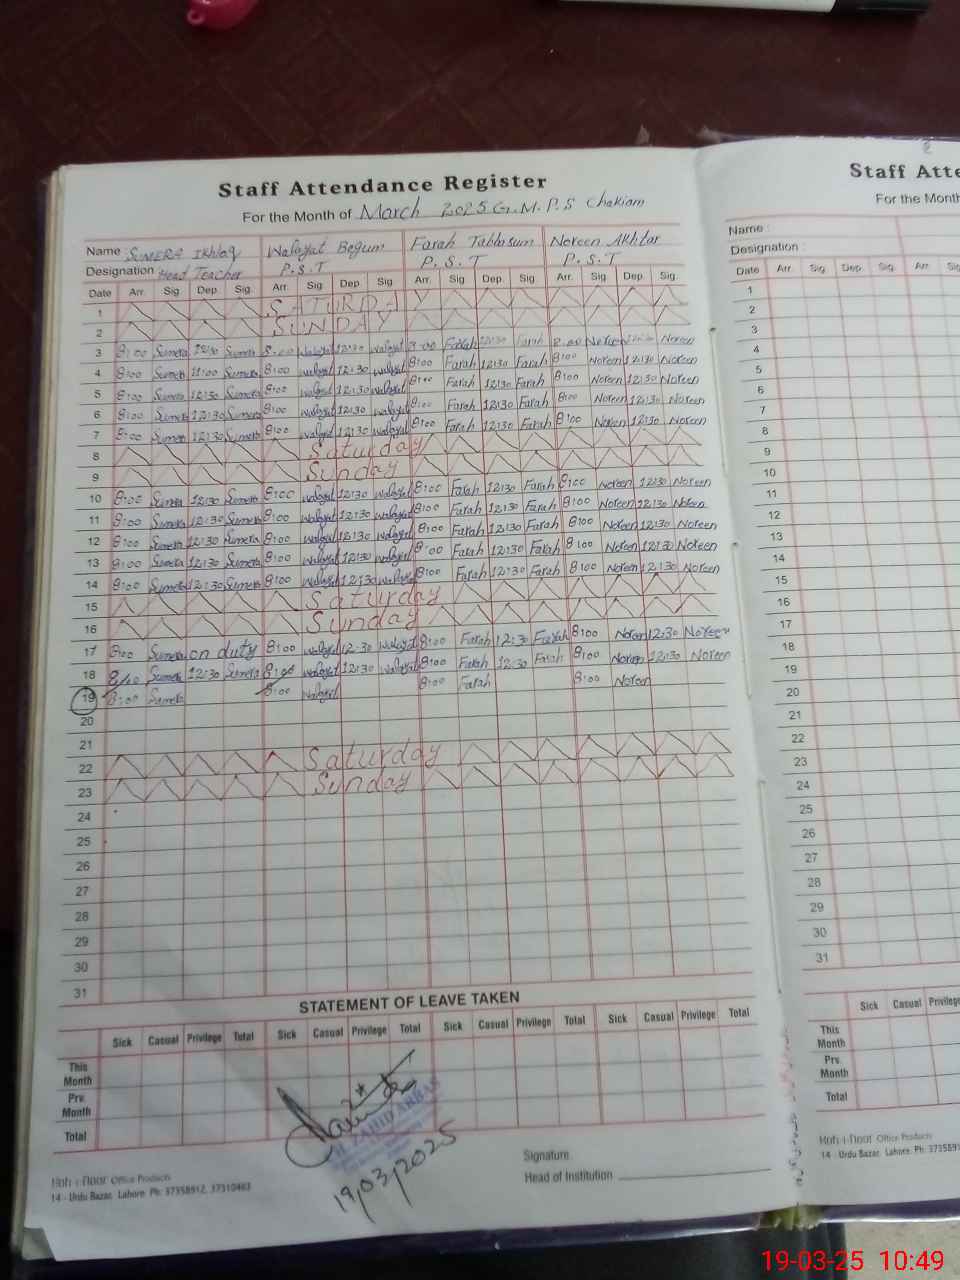 Staff Attendance Register
For the Month of March 2025 G.M.P.S Chakiam
Name SUMERA Ikhlaq Walayat Begum Farah Tabbsum Noreen Akhtar
Designation Head Teacher P.S.T P.S.T P.S.T
Date Arr. Sig Dep. Sig. Arr. Sig. Dep Sig. Arr. Sig Dep. Sig. Arr. Sig. Dep. Sig.
1 SATURDAY
2 SUNDAY
3 8:00 Sumera 12:30 Sumera 8:00 Walayat 12:30 Walayat 8:00 Farah 12:30 Farah 8:00 Noreen 12:30 Noreen
4 8:00 Sumera 11:00 Sumera 8:00 Walayat 12:30 Walayat 8:00 Farah 12:30 Farah 8:00 Noreen 12:30 Noreen
5 8:00 Sumera 12:30 Sumera 8:00 Walayat 12:30 Walayat 8:00 Farah 12:30 Farah 8:00 Noreen 12:30 Noreen
6 8:00 Sumera 12:30 Sumera 8:00 Walayat 12:30 Walayat 8:00 Farah 12:30 Farah 8:00 Noreen 12:30 Noreen
7 8:00 Sumera 12:30 Sumera 8:00 Walayat 12:30 Walayat 8:00 Farah 12:30 Farah 8:00 Noreen 12:30 Noreen
8 Saturday
9 Sunday
10 8:00 Sumera 12:30 Sumera 8:00 Walayat 12:30 Walayat 8:00 Farah 12:30 Farah 8:00 Noreen 12:30 Noreen
11 8:00 Sumera 12:30 Sumera 8:00 Walayat 12:30 Walayat 8:00 Farah 12:30 Farah 8:00 Noreen 12:30 Noreen
12 8:00 Sumera 12:30 Sumera 8:00 Walayat 12:30 Walayat 8:00 Farah 12:30 Farah 8:00 Noreen 12:30 Noreen
13 8:00 Sumera 12:30 Sumera 8:00 Walayat 12:30 Walayat 8:00 Farah 12:30 Farah 8:00 Noreen 12:30 Noreen
14 8:00 Sumera 12:30 Sumera 8:00 Walayat 12:30 Walayat 8:00 Farah 12:30 Farah 8:00 Noreen 12:30 Noreen
15 Saturday
16 Sunday
17 8:00 Sumera on duty 8:00 Walayat 12:30 Walayat 8:00 Farah 12:30 Farah 8:00 Noreen 12:30 Noreen
18 8:00 Sumera 12:30 Sumera 8:00 Walayat 12:30 Walayat 8:00 Farah 12:30 Farah 8:00 Noreen 12:30 Noreen
19 8:00 Sumera 8:00 Walayat 8:00 Farah 8:00 Noreen
20
21
22 Saturday
23 Sunday
24
25
26
27
28
29
30
31
STATEMENT OF LEAVE TAKEN
Sick Casual Privilege Total Sick Casual Privilege Total Sick Casual Privilege Total Sick Casual Privilege Total
This Month
Prv. Month
Total
ZAHID ABBAS
19/03/2025
Signature
Head of Institution
Roh-i-Noor Office Products
14 - Urdu Bazar, Lahore Ph: 37358912, 37310463
Staff Atte
For the Month
Name :
Designation :
Date Arr. Sig Dep. Sig Arr. Sig
1
2
3
4
5
6
7
8
9
10
11
12
13
14
15
16
17
18
19
20
21
22
23
24
25
26
27
28
29
30
31
Sick Casual Privilege
This Month
Prv. Month
Total
Roh-i-Noor Office Products
14 - Urdu Bazar, Lahore. Ph: 3735891
19-03-25 10:49